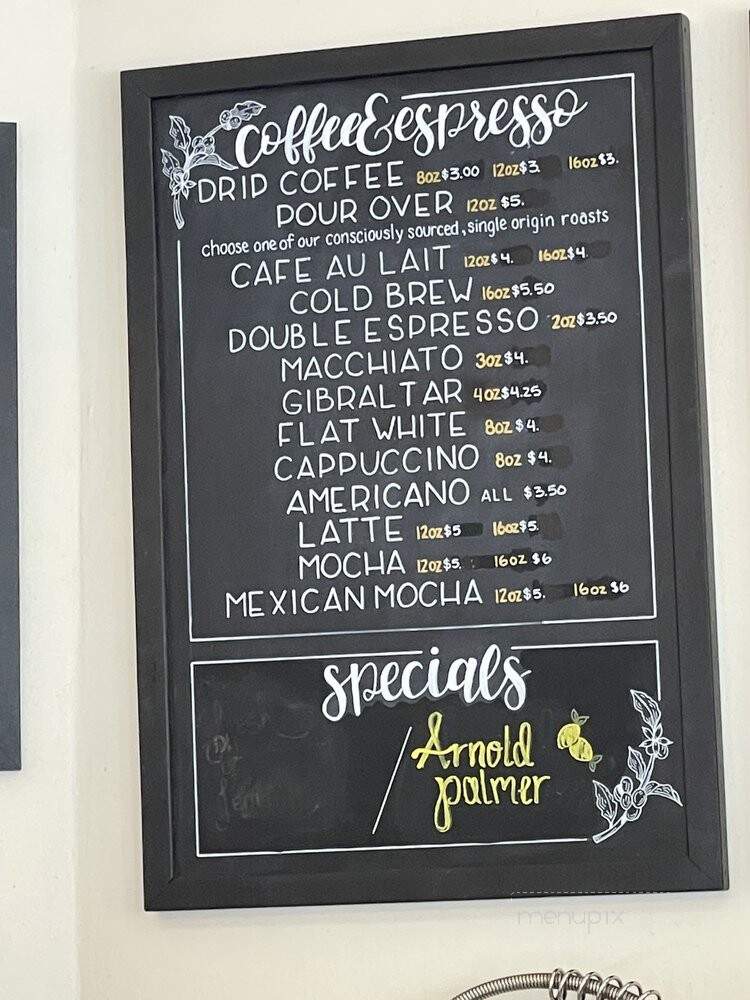 coffee & espresso
DRIP COFFEE 8oz $3.00 12oz $3. 16oz $3.
POUR OVER 12oz $5.
choose one of our consciously sourced, single origin roasts
CAFE AU LAIT 12oz $4. 16oz $4.
COLD BREW 16oz $5.50
DOUBLE ESPRESSO 2oz $3.50
MACCHIATO 3oz $4.
GIBRALTAR 4oz $4.25
FLAT WHITE 8oz $4.
CAPPUCCINO 8oz $4.
AMERICANO ALL $3.50
LATTE 12oz $5 16oz $5.
MOCHA 12oz $5. 16oz $6
MEXICAN MOCHA 12oz $5. 16oz $6
specials
/ Arnold
palmer
menupix